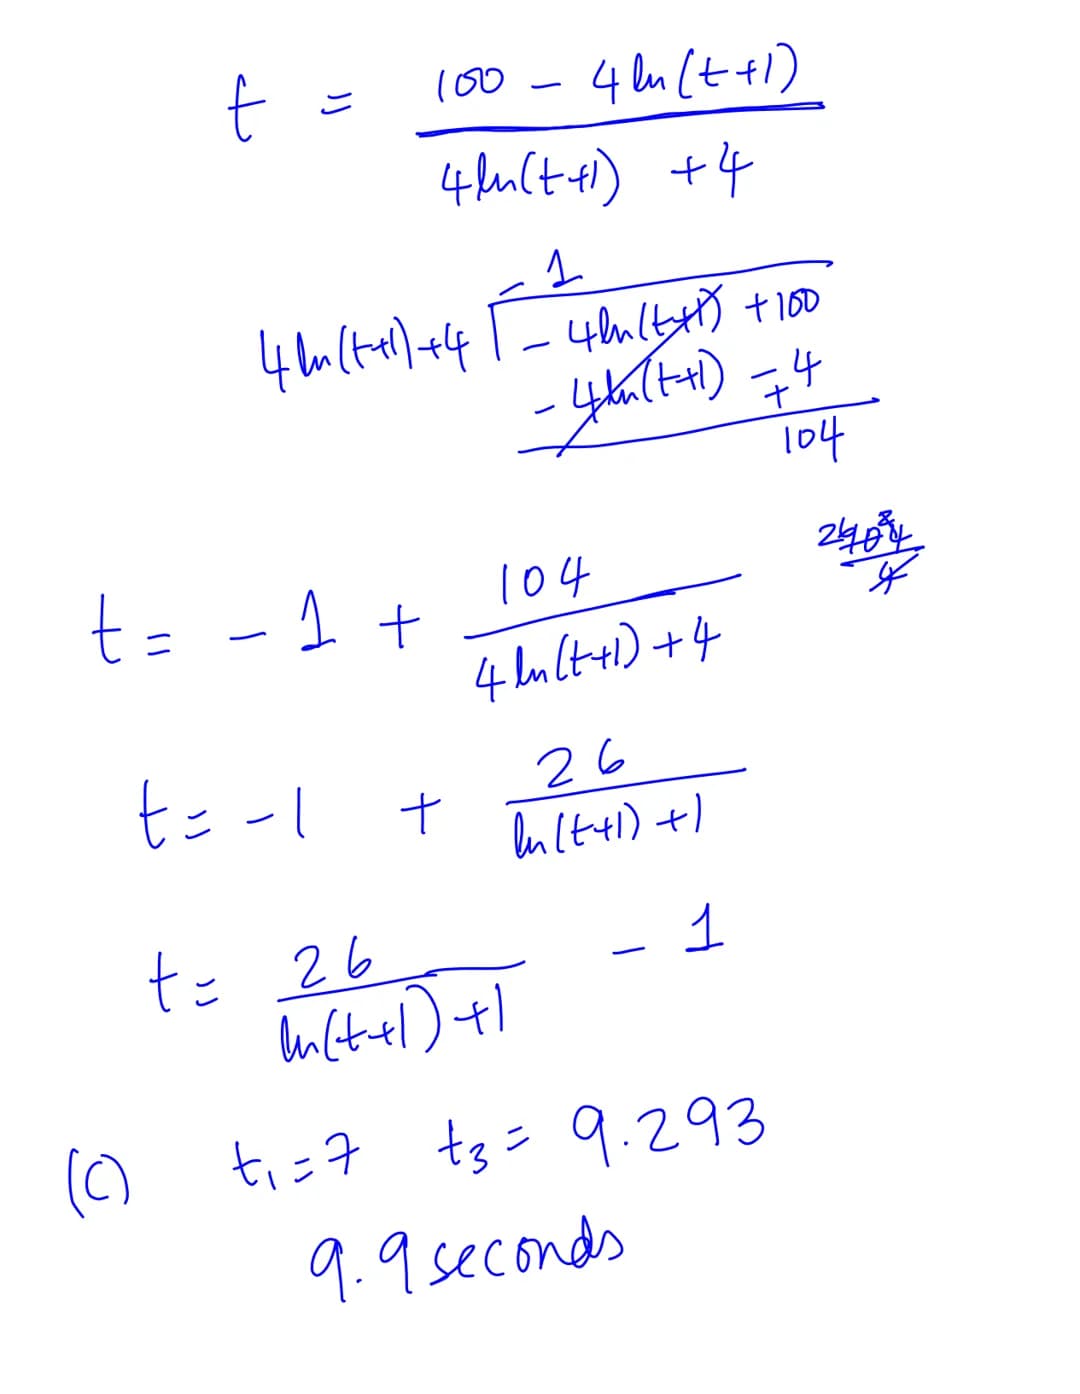 t = (100 - 4 ln(t+1)) / (4ln(t+1) + 4)
- 1
4 ln(t+1)+4 ⟌ - 4ln(t+1) +100
- 4ln(t+1) - 4
+
104
t = - 1 + 104 / (4 ln(t+1) + 4)
t = -1 + 26 / (ln(t+1) + 1)
t = 26 / (ln(t+1) + 1) - 1
(C) t₁=7 t₃= 9.293
9.9 seconds